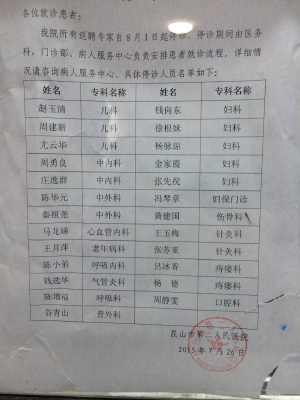 各位就诊患者：
我院所有返聘专家自8月1日起停诊，停诊期间由医务
科、门诊部、病人服务中心负责安排患者就诊流程，详细情
况请咨询病人服务中心。具体停诊人员名单如下：
姓名 专科名称 姓名 专科名称
赵玉清 儿科 钱向东 妇科
周建新 儿科 徐根妹 妇科
尤云华 儿科 杨脉琼 妇科
周勇良 中内科 金家霞 妇科
庄逸群 中内科 张先祝 妇科
陈华元 中外科 冯琴章 妇保门诊
秦祖尧 中外科 黄建国 伤骨科
马龙娣 心血管内科 王玉梅 针灸科
王月萍 老年病科 张苏亚 针灸科
陈小弟 呼吸内科 吕冰香 痔瘘科
钱选华 气管炎科 杨德 痔瘘科
陈增福 呼吸科 周静雯 口腔科
谷青山 普外科
昆山市第二人民医院
2015年7月26日